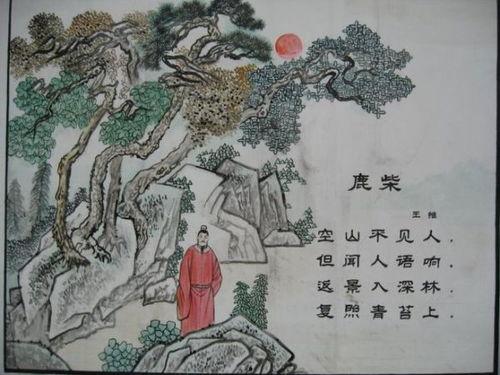 鹿柴
王维
空山不见人，
但闻人语响．
返景入深林．
复照青苔上．